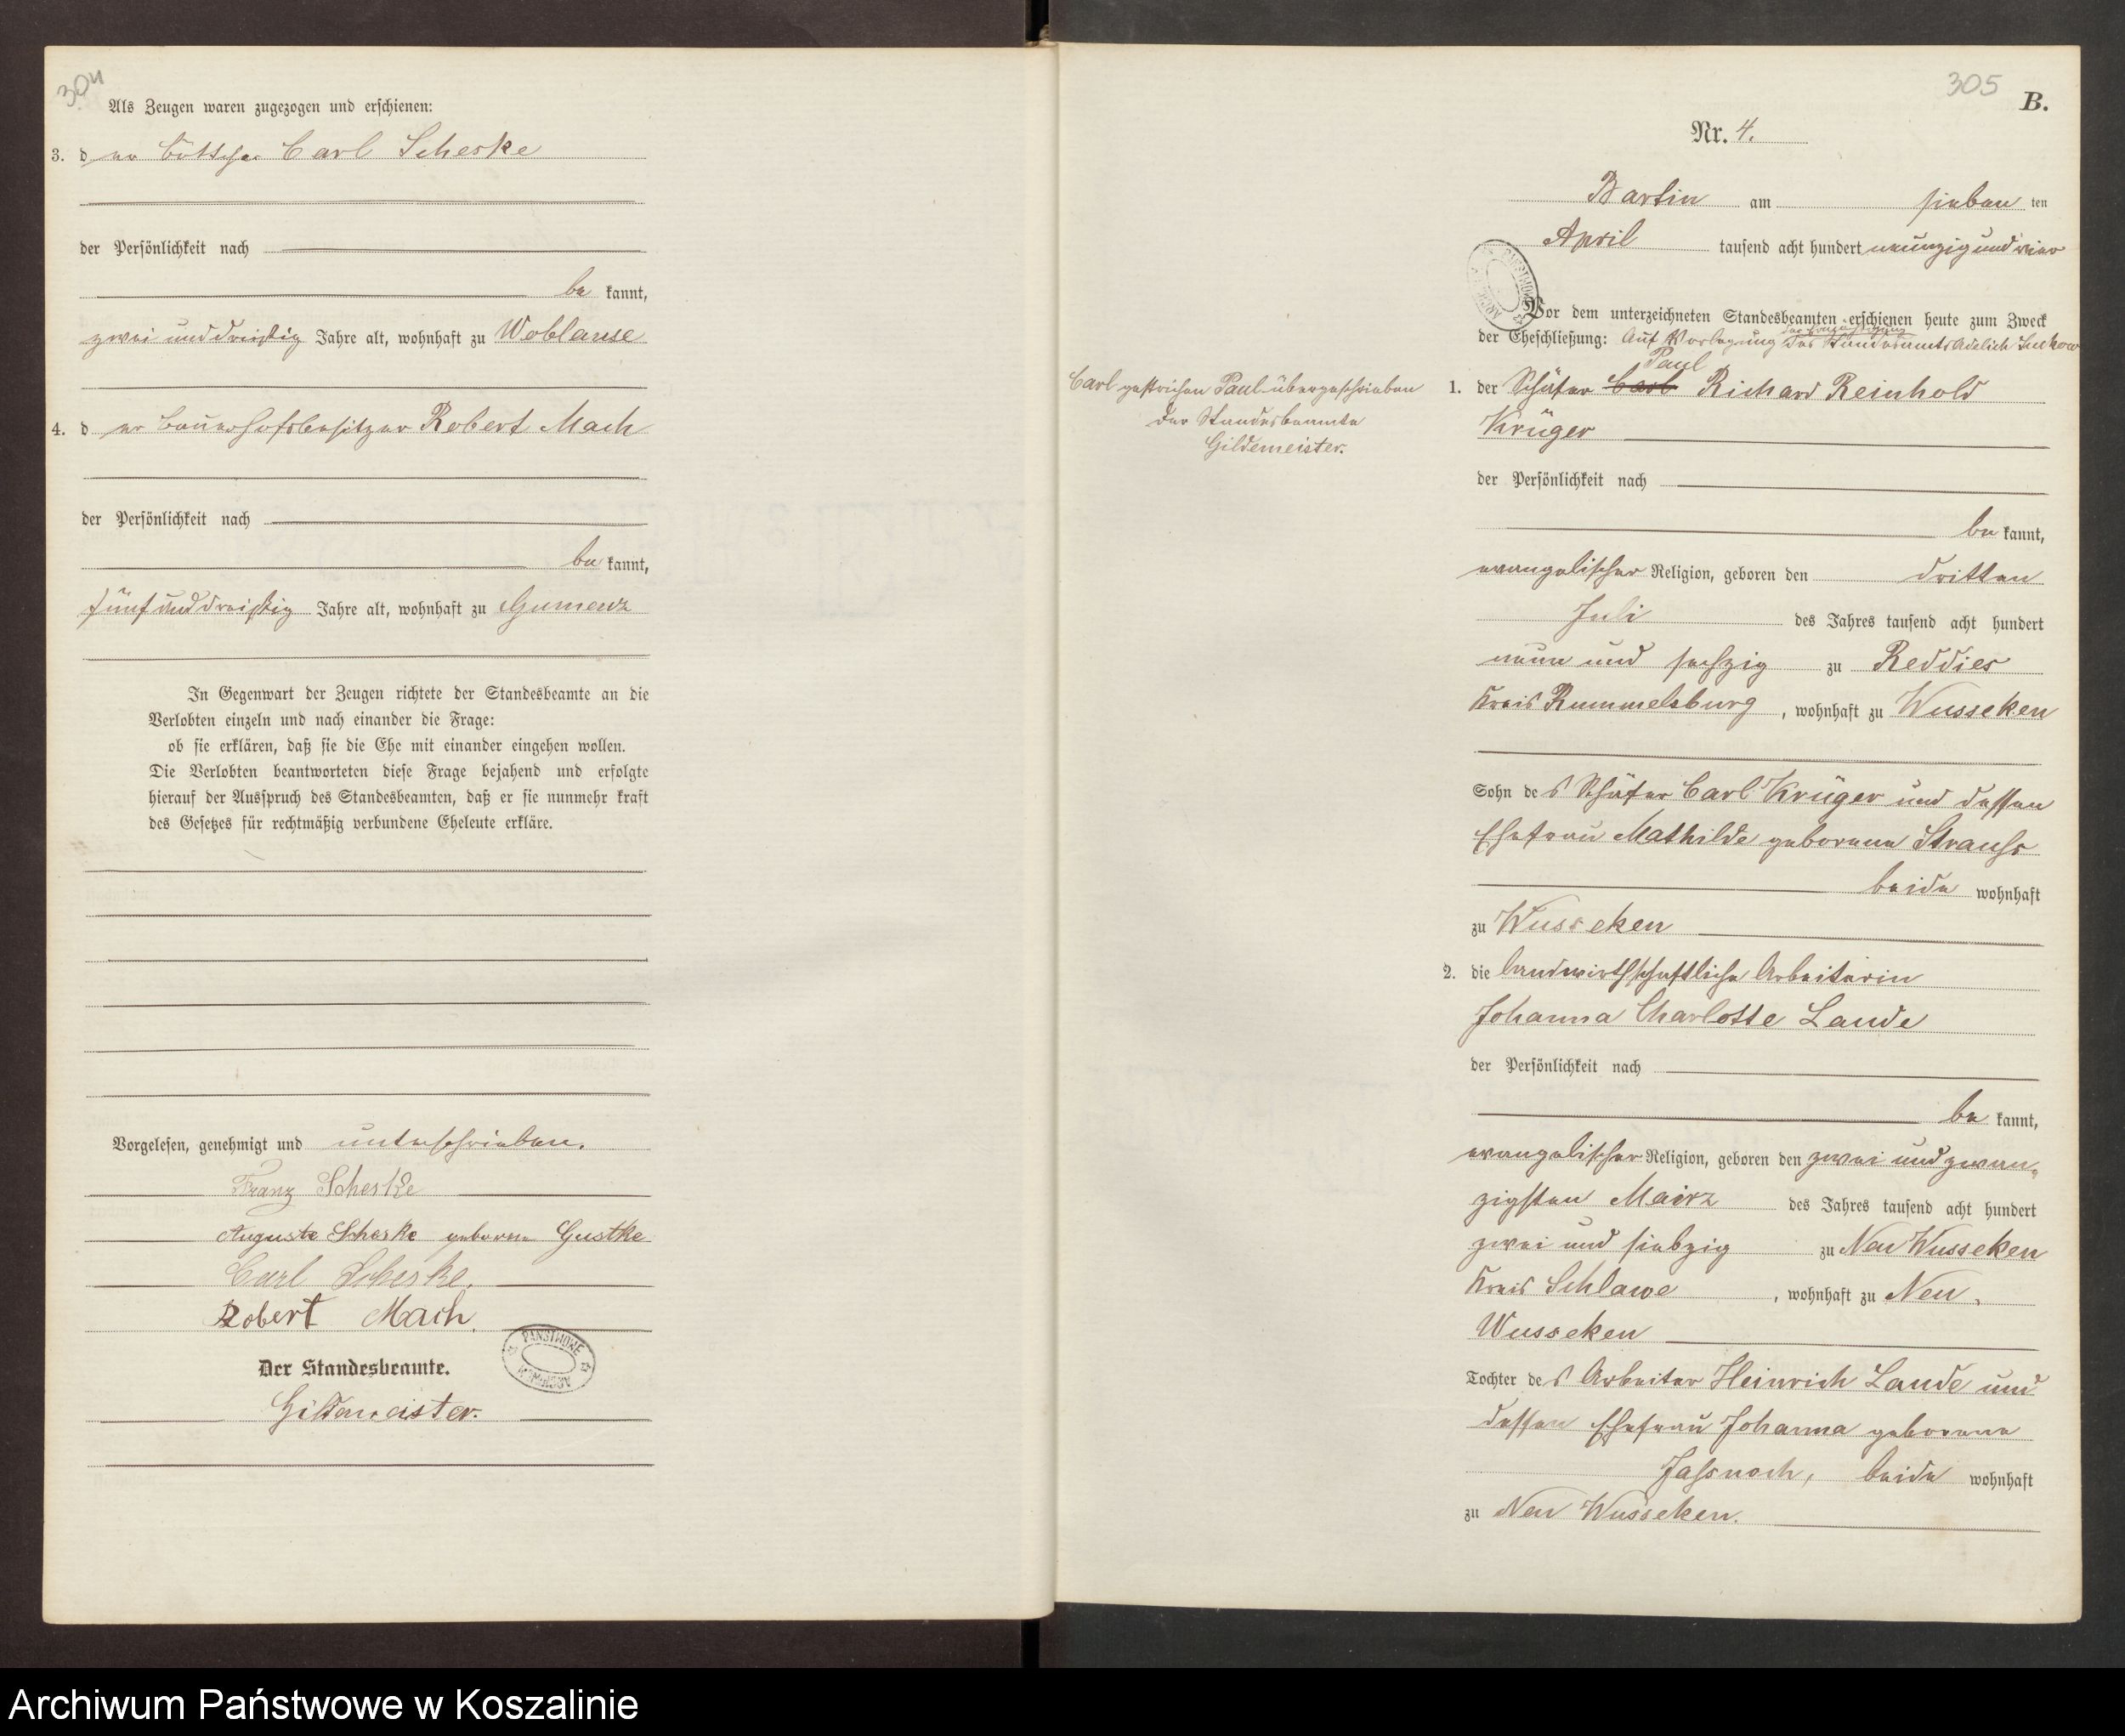 304
Als Zeugen waren zugezogen und erschienen:
3. der Böttcher Carl Scheske
der Persönlichkeit nach
be kannt,
zwei und dreißig Jahre alt, wohnhaft zu Woblanse
4. d er Bauerhofsbesitzer Robert Mach
der Persönlichkeit nach
be kannt,
fünf und dreißig Jahre alt, wohnhaft zu Gumenz
In Gegenwart der Zeugen richtete der Standesbeamte an die
Verlobten einzeln und nach einander die Frage:
ob sie erklären, daß sie die Ehe mit einander eingehen wollen.
Die Verlobten beantworteten diese Frage bejahend und erfolgte
hierauf der Ausspruch des Standesbeamten, daß er sie nunmehr kraft
des Gesetzes für rechtmäßig verbundene Eheleute erkläre.
Vorgelesen, genehmigt und unterschrieben.
Franz Scheske
Auguste Scheske geborne Gustke
Carl Scheske.
Robert Mach.
Der Standesbeamte.
Gildemeister.
305
B.
Nr. 4.
Bartin am sieben ten
April tausend acht hundert neunzig und vier
Vor dem unterzeichneten Standesbeamten erschienen heute zum Zweck
der Eheschließung: Auf Vorlegung der Ermächtigung des Standesamts Adelich Suckow
Carl gestrichen Paul übergeschrieben
Der Standesbeamte
Gildemeister.
Paul
1. der Schäfer Carl Richard Reinhold
Krüger
der Persönlichkeit nach
be kannt,
evangelischer Religion, geboren den dritten
Juli des Jahres tausend acht hundert
neun und sechzig zu Reddies
Kreis Rummelsburg, wohnhaft zu Wusseken
Sohn des Schäfer Carl Krüger und dessen
Ehefrau Mathilde geborene Strauß
beide wohnhaft
zu Wusseken
2. die landwirthschaftliche Arbeiterin
Johanna Charlotte Lande
der Persönlichkeit nach
be kannt,
evangelischer Religion, geboren den zwei und zwan-
zigsten Maerz des Jahres tausend acht hundert
zwei und siebzig zu Neu Wusseken
Kreis Schlawe, wohnhaft zu Neu-
Wusseken
Tochter des Arbeiter Heinrich Lande und
dessen Ehefrau Johanna geborene
Jassnoch, beide wohnhaft
zu Neu Wusseken.
Archiwum Państwowe w Koszalinie